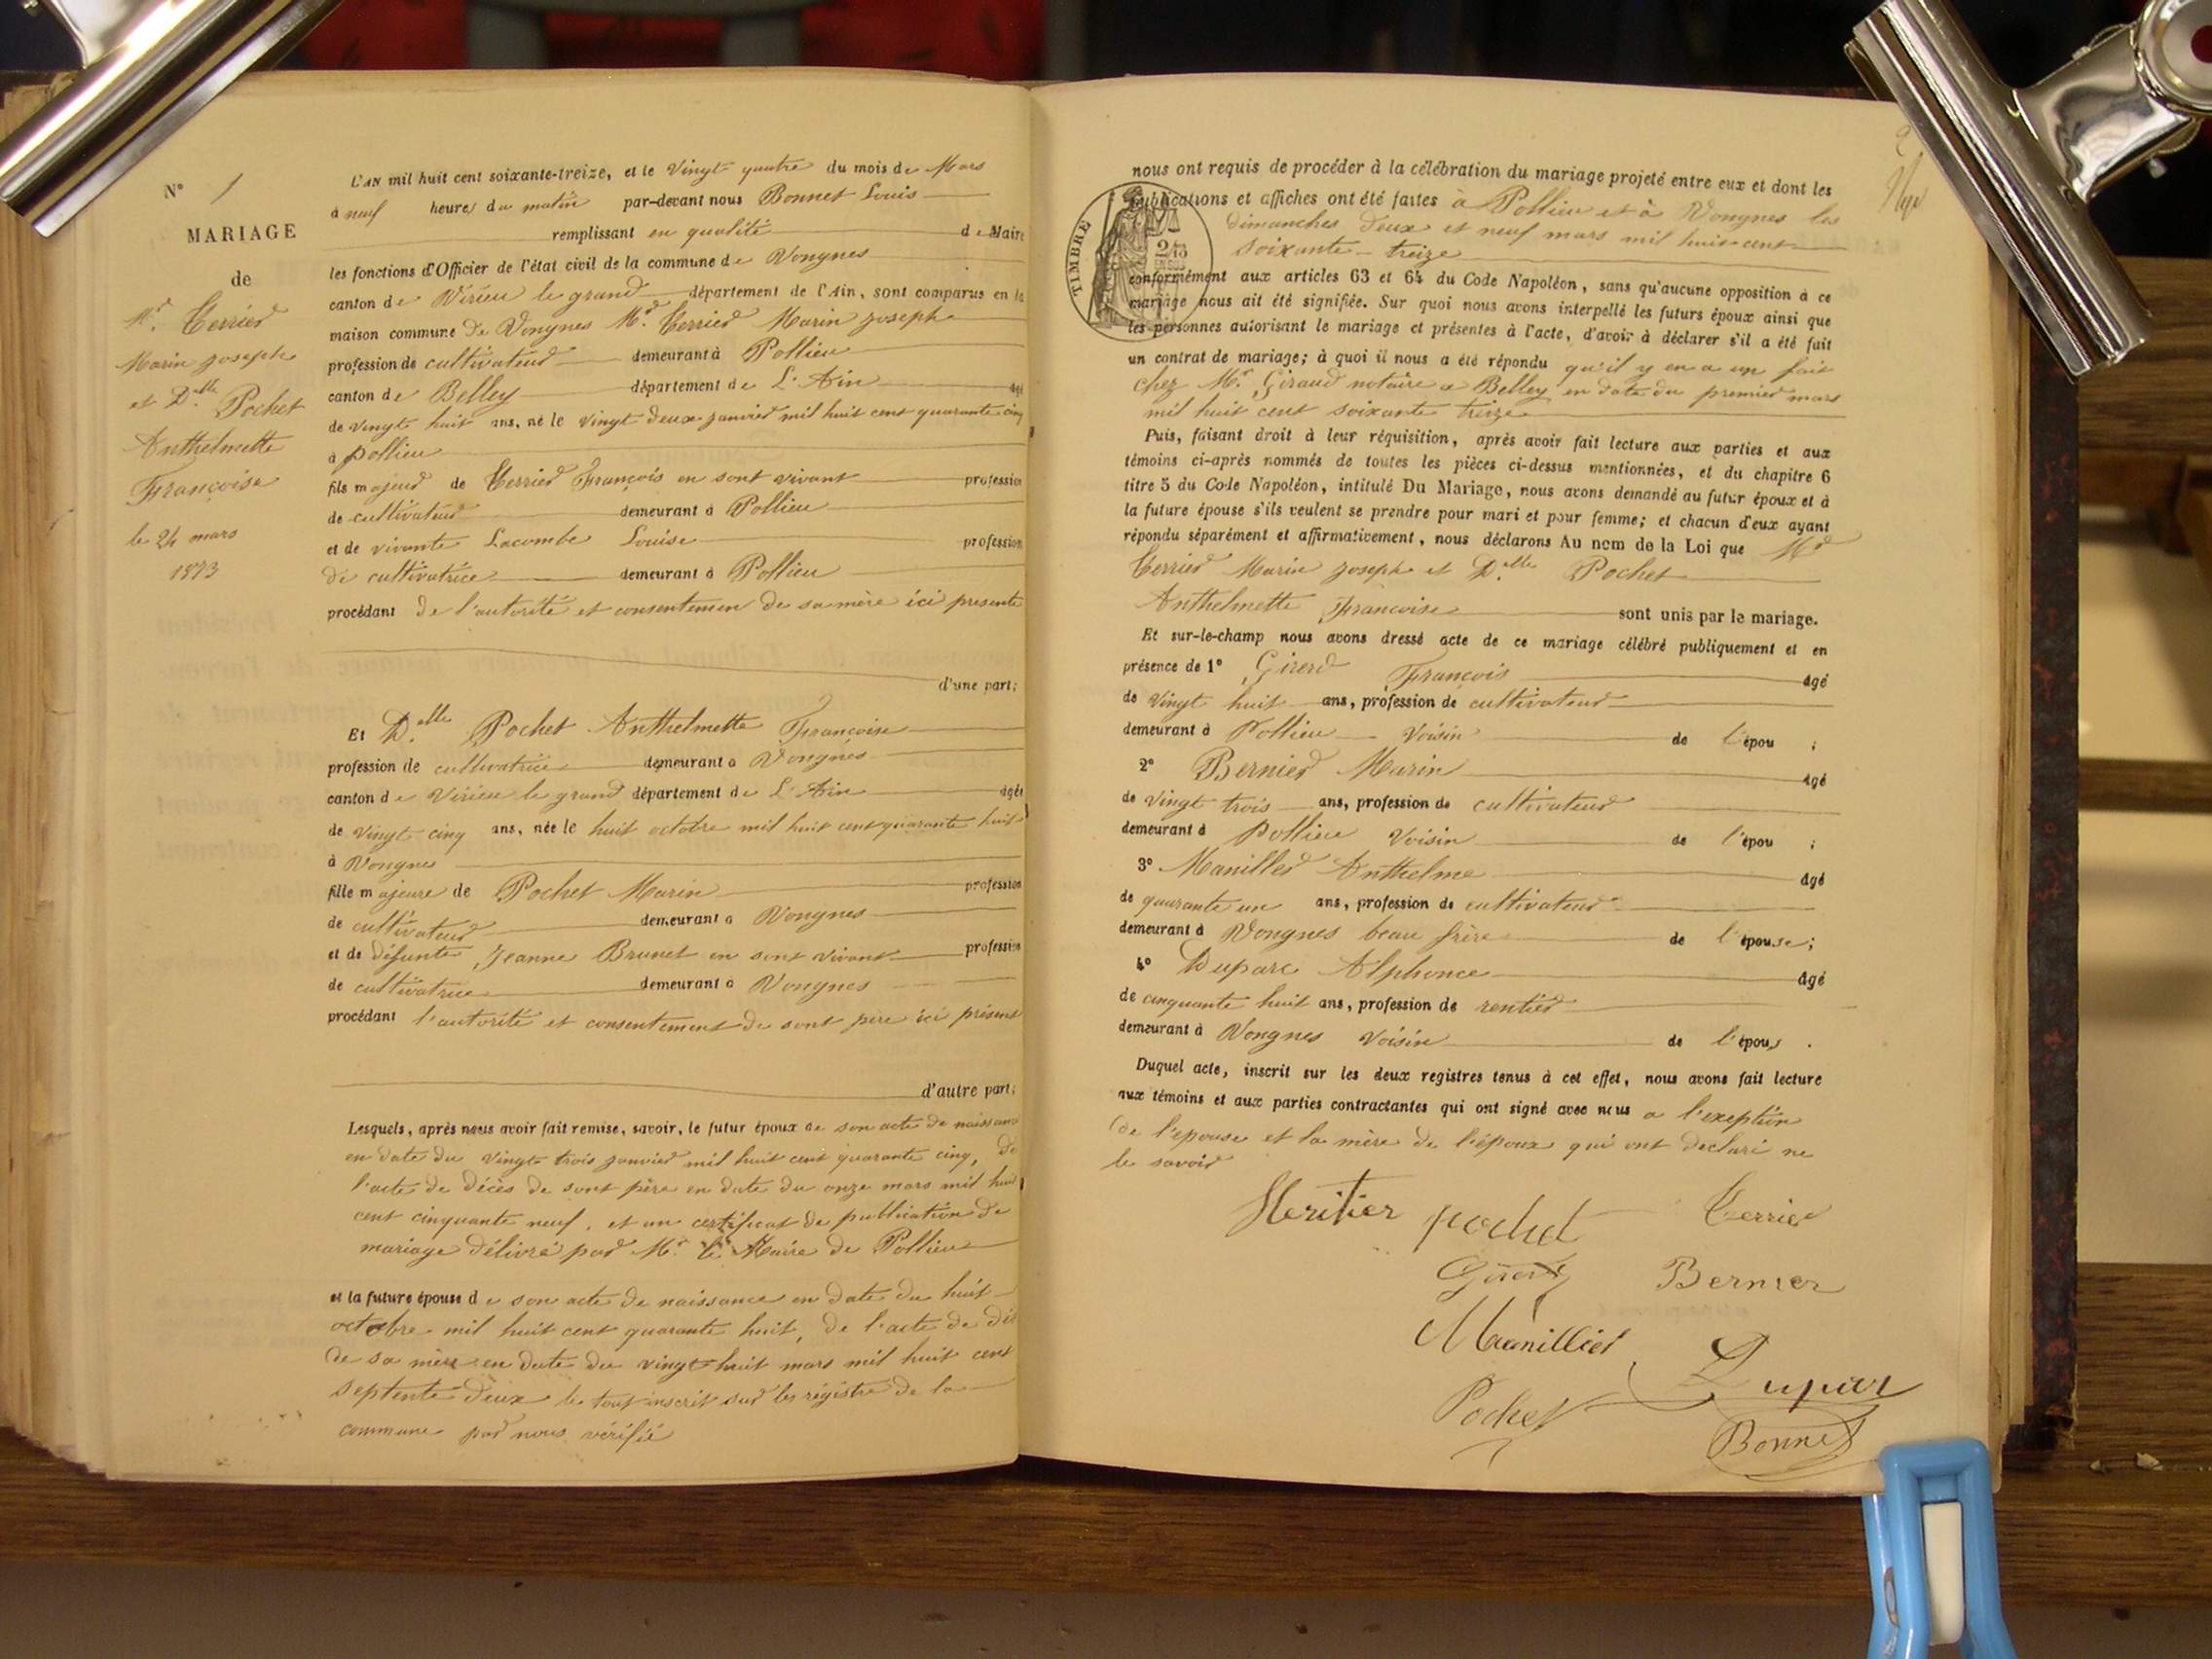 N° 1
MARIAGE
de
Mr. Terrier
Marin Joseph
et Dlle Pochet
Anthelmette
Françoise
le 24 mars
1873
L'AN mil huit cent soixante-treize, et le vingt quatre du mois de Mars
à neuf heures du matin par-devant nous Bonnet Louis
remplissant en qualité de Maire
les fonctions d'Officier de l'état civil de la commune de Vongnes
canton de Virieu le grand département de l'Ain, sont comparus en la
maison commune de Vongnes Mr. Terrier Marin Joseph
profession de cultivateur demeurant à Pollieu
canton de Belley département de L'Ain âgé
de vingt huit ans, né le vingt deux janvier mil huit cent quarante cinq
à Pollieu
fils majeur de Terrier François en sont vivant profession
de cultivateur demeurant à Pollieu
et de vivante Lacombe Louise profession
de cultivatrice demeurant à Pollieu
procédant de l'autorité et consentemen de sa mère ici présente
d'une part;
Et Dlle Pochet Anthelmette Françoise
profession de cultivatrice demeurant à Vongnes
canton de Virieu le grand département de L'Ain âgée
de vingt cinq ans, née le huit octobre mil huit cent quarante huit
à Vongnes
fille majeure de Pochet Marin profession
de cultivateur demeurant à Vongnes
et de défunte Jeanne Brunet en sont vivant profession
de cultivatrice demeurant à Vongnes
procédant l'autorité et consentement de sont père ici présent
d'autre part;
Lesquels, après nous avoir fait remise, savoir, le futur époux de son acte de naissance
en date du vingt trois janvier mil huit cent quarante cinq, de
l'acte de décès de sont père en date du onze mars mil huit
cent cinquante neuf, et un certificat de publication de
mariage délivré par Mr. le Maire de Pollieu
et la future épouse de son acte de naissance en date du huit
octobre mil huit cent quarante huit, de l'acte de
de sa mère en date du vingt huit mars mil huit cent
septente deux le tout inscrit sur les régistre de la
commune par nous vérifié
2
nous ont requis de procéder à la célébration du mariage projeté entre eux et dont les
publications et affiches ont été faites à Pollieu et à Vongnes les
dimanches deux et neuf mars mil huit cent
soixante-treize
TIMBRE
conformément aux articles 63 et 64 du Code Napoléon, sans qu'aucune opposition à ce
mariage nous ait été signifiée. Sur quoi nous avons interpellé les futurs époux ainsi que
les personnes autorisant le mariage et présentes à l'acte, d'avoir à déclarer s'il a été fait
un contrat de mariage; à quoi il nous a été répondu qu'il y en a un fait
chez Mr. Giraud notaire a Belley en date du premier mars
mil huit cent soixante treize
Puis, faisant droit à leur réquisition, après avoir fait lecture aux parties et aux
témoins ci-après nommés de toutes les pièces ci-dessus mentionnées, et du chapitre 6
titre 5 du Code Napoléon, intitulé Du Mariage, nous avons demandé au futur époux et à
la future épouse s'ils veulent se prendre pour mari et pour femme; et chacun d'eux ayant
répondu séparément et affirmativement, nous déclarons Au nom de la Loi que Mr
Terrier Marin Joseph et Dlle Pochet
Anthelmette Françoise sont unis par le mariage.
Et sur-le-champ nous avons dressé acte de ce mariage célébré publiquement et en
présence de 1° Girerd François âgé
de vingt huit ans, profession de cultivateur
demeurant à Pollieu Voisin de l'épou ;
2° Bernier Marin âgé
de vingt trois ans, profession de cultivateur
demeurant à Pollieu Voisin de l'épou ;
3° Manillier Anthelme âgé
de quarante un ans, profession de cultivateur
demeurant à Vongnes beau frère de l'épouse;
4° Duparc Alphonce âgé
de cinquante huit ans, profession de rentier
demeurant à Vongnes Voisin de l'épous.
Duquel acte, inscrit sur les deux registres tenus à cet effet, nous avons fait lecture
aux témoins et aux parties contractantes qui ont signé avec nous a l'exeption
de l'épouse et la mère de l'époux qui ont déclaré ne
le savoir
Heritier pochet Terrier
Girerd Bernier
Manillier
Dupar
Pochet
Bonnet